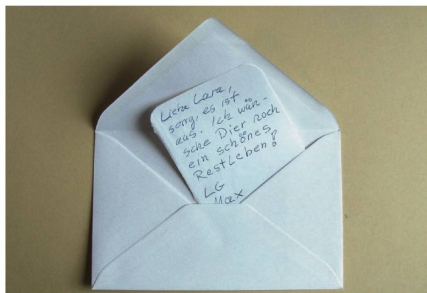 Liebe Lara,
sorry, es ist
aus. Ich wün-
sche Dier noch
ein schönes
RestLeben!
LG
Max